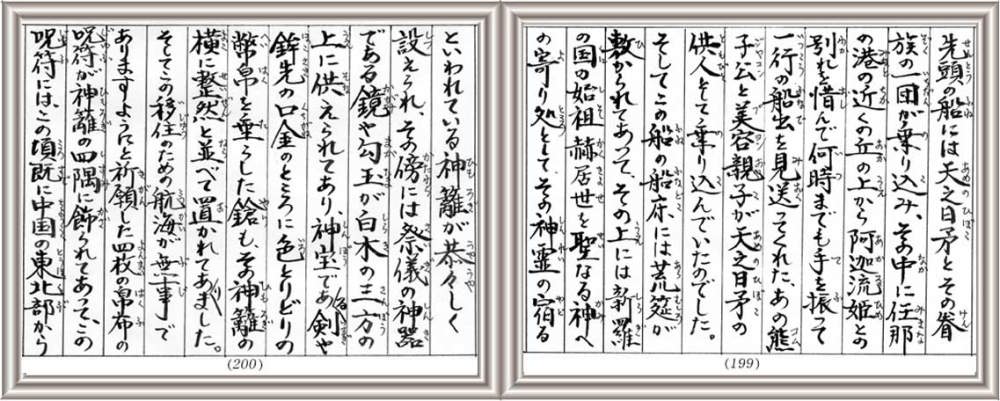 先頭の船には天之日矛とその眷
族の一団が乗り込み、その中に任那
の港の近くの丘の上から阿迦流姫との
別れを惜んで何時までも手を振って
一行の船出を見送ってくれた、あの熊
子公と美容親子が天之日矛の
供人として乗り込んでいたのでした。
そしてこの船の船床には荒筵が
敷かられてあって、その上には新羅
の国の始祖赫居世を聖なる神へ
の寄り処としてその神霊の宿る
(199)
といわれている神籬が恭々しく
設えられ、その傍には祭儀の神器
である鏡や勾玉が白木の三方の
上に供えられてあり神宝である剣や
鉾先の口金のところに色とりどりの
幣帛を垂らした鎗も、その神籬の
横に整然と並べて置かれてありました。
そしてこの移住のための航海が無事で
ありますようにと祈願した四枚の帛布の
呪符が神籬の四隅に飾られてあって、この
呪符には、この頃既に中国の東北部から
(200)